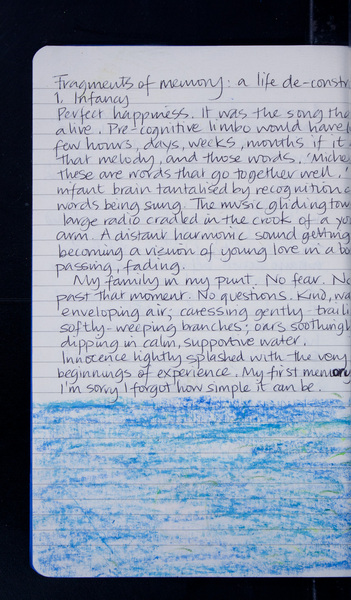 Fragments of memory: a life de-constr
1. Infancy
Perfect happiness. It was the song tha
alive. Pre-cognitive limbo would have l
few hours, days, weeks, months if it
that melody, and those words. 'Miche
these are words that go together well,'
infant brain tantalised by recognition o
words being sung. The music gliding tow
large radio cradled in the crook of a yo
arm. A distant harmonic sound getting
becoming a vision of young love in a bo
passing, fading.
My family in my punt. No fear. No
past that moment. No questions. Kind, wa
enveloping air; caressing gently traili
softly-weeping branches; oars soothingl
dipping in calm, supportive water.
Innocence lightly splashed with the very
beginnings of experience. My first memory
I'm sorry I forgot how simple it can be.